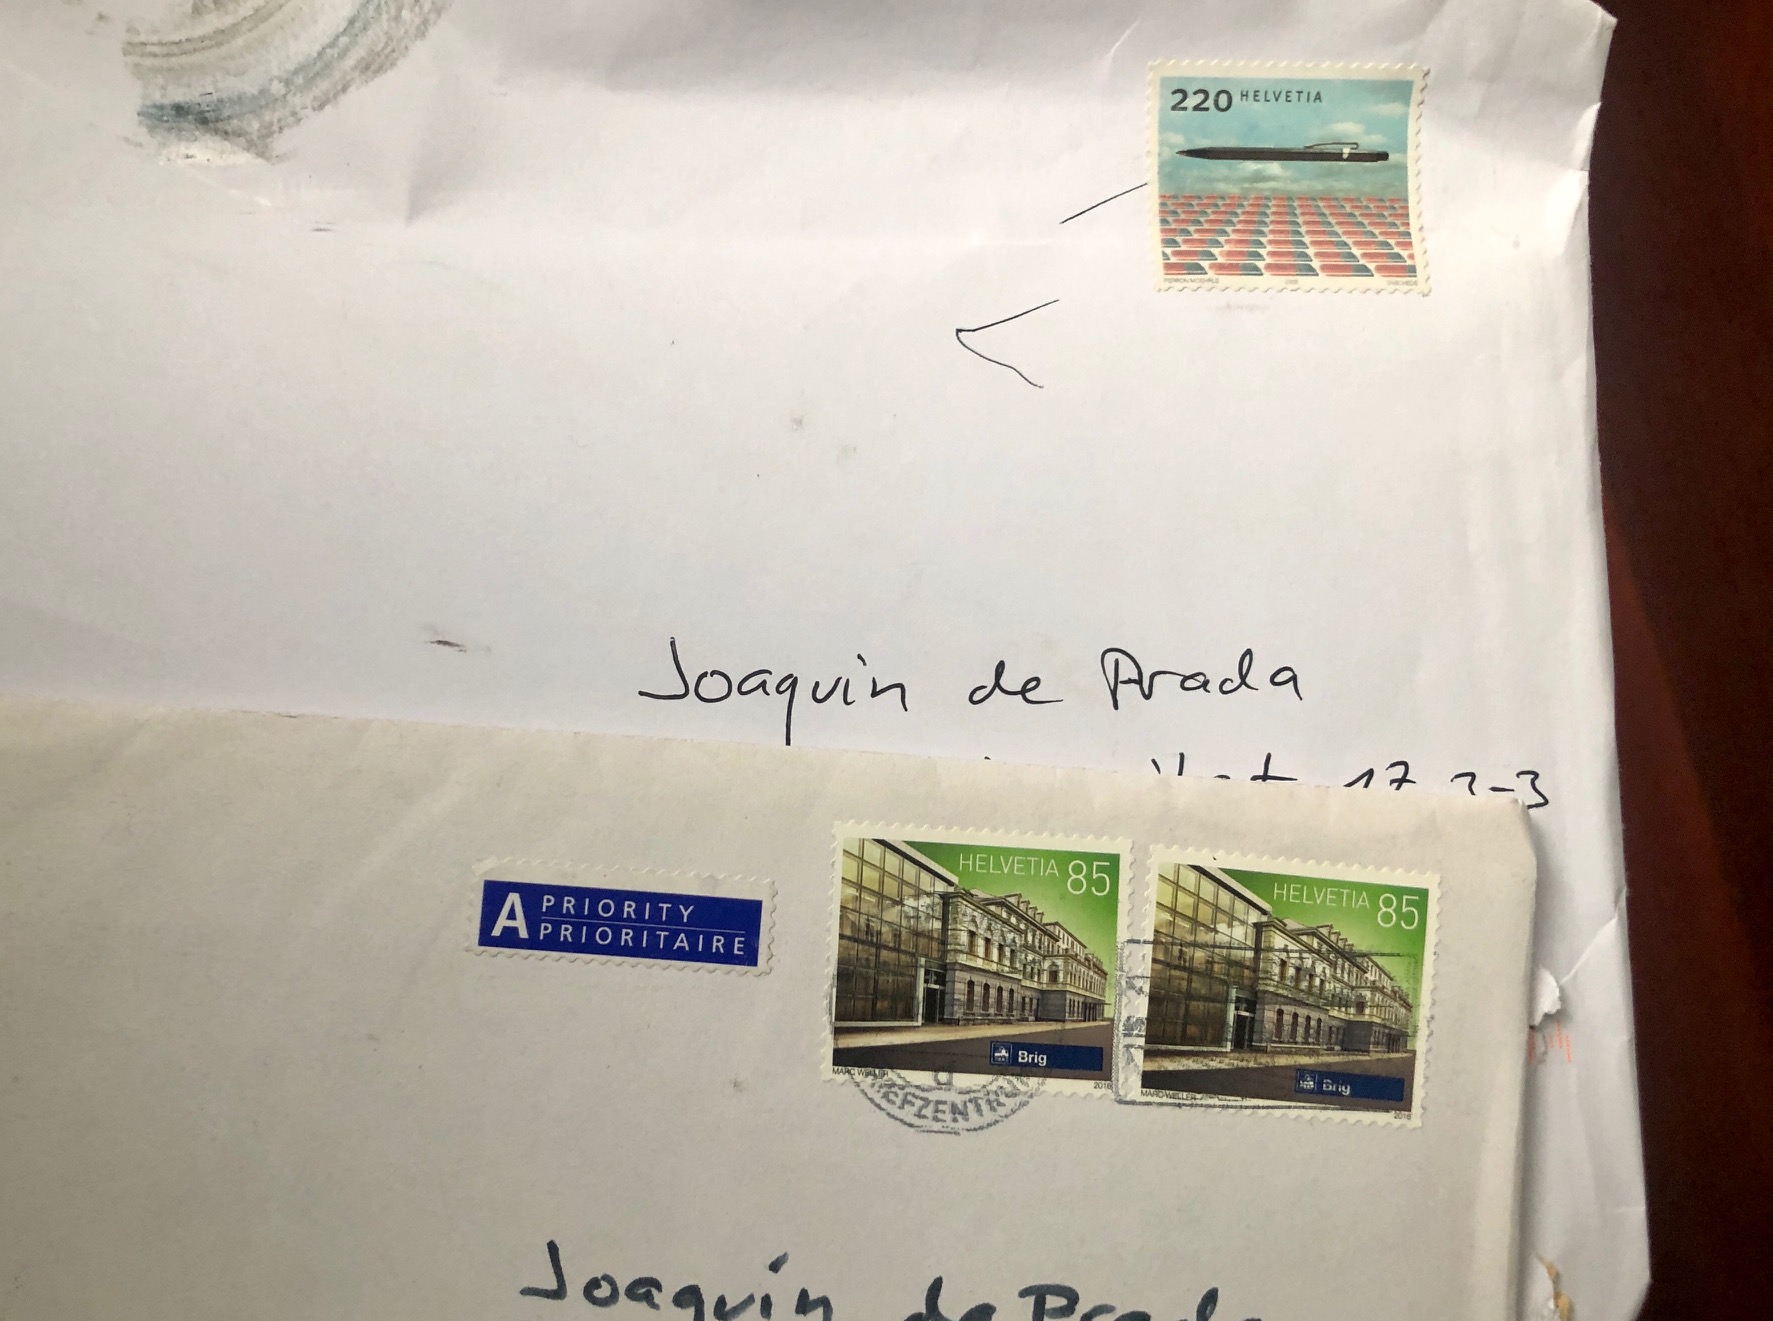 220 HELVETIA
Joaquin de Prada
17 2-3
A PRIORITY
PRIORITAIRE
HELVETIA 85
Brig
MARC WELLER 2016
HELVETIA 85
Brig
MARC WELLER 2016
Joaquín de Prada